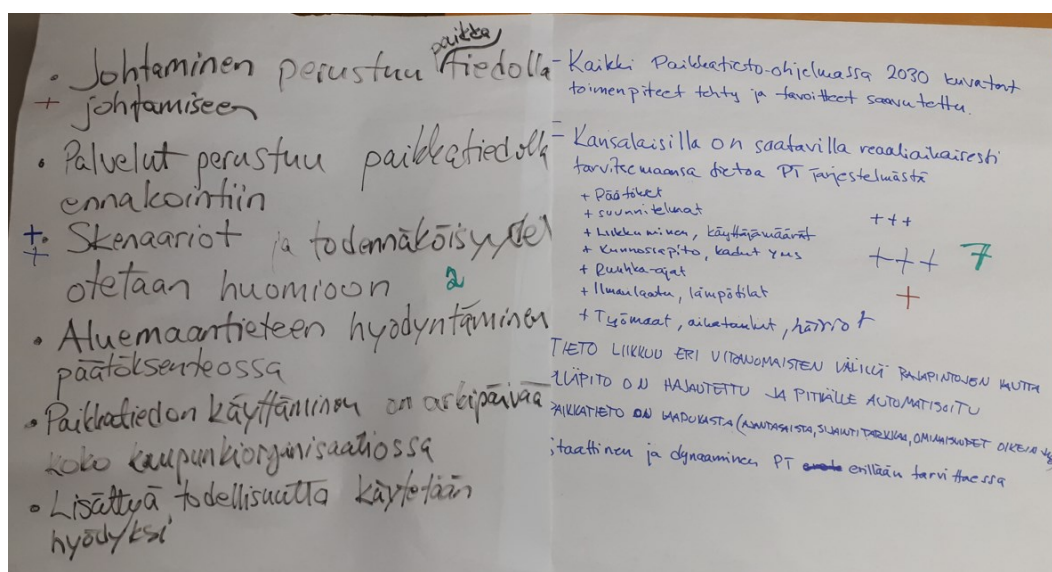 paikka
• Johtaminen perustuu tiedolla
+ johtamiseen
• Palvelut perustuu paikkatiedolla
ennakointiin
+• Skenaariot ja todennäköisyydet
+ otetaan huomioon 2
• Aluemaantieteen hyödyntäminen
päätöksenteossa
• Paikkatiedon käyttäminen on arkipäivää
koko kaupunkiorganisaatiossa
• Lisättyä todellisuutta käytetään
hyödyksi
- Kaikki Paikkatieto-ohjelmassa 2030 kuvatart
toimenpiteet tehty ja tavoitteet saavutettu.
- Kansalaisilla on saatavilla reaaliaikaisesti
tarvitsemaansa tietoa PT järjestelmästä
+ Päätökset
+ suunnitelmat +++
+ Liikkuminen, käyttäjämäärät
+ Kunnossapito, kadut yms +++ 7
+ Ruuhka-ajat
+ Ilmanlaatu, lämpötilat +
+ Työmaat, aikataulut, häiriöt
TIETO LIIKKUU ERI VIRANOMAISTEN VÄLILLÄ RAJAPINTOJEN KAUTTA
YLLÄPITO ON HAJAUTETTU JA PITKÄLLE AUTOMATISOITU
PAIKKATIETO ON LAADUKASTA (AJANTASAISTA, SIJAINTITARKKAA, OMINAISUUDET OIKEIN
staattinen ja dynaaminen PT erillään tarvittaessa